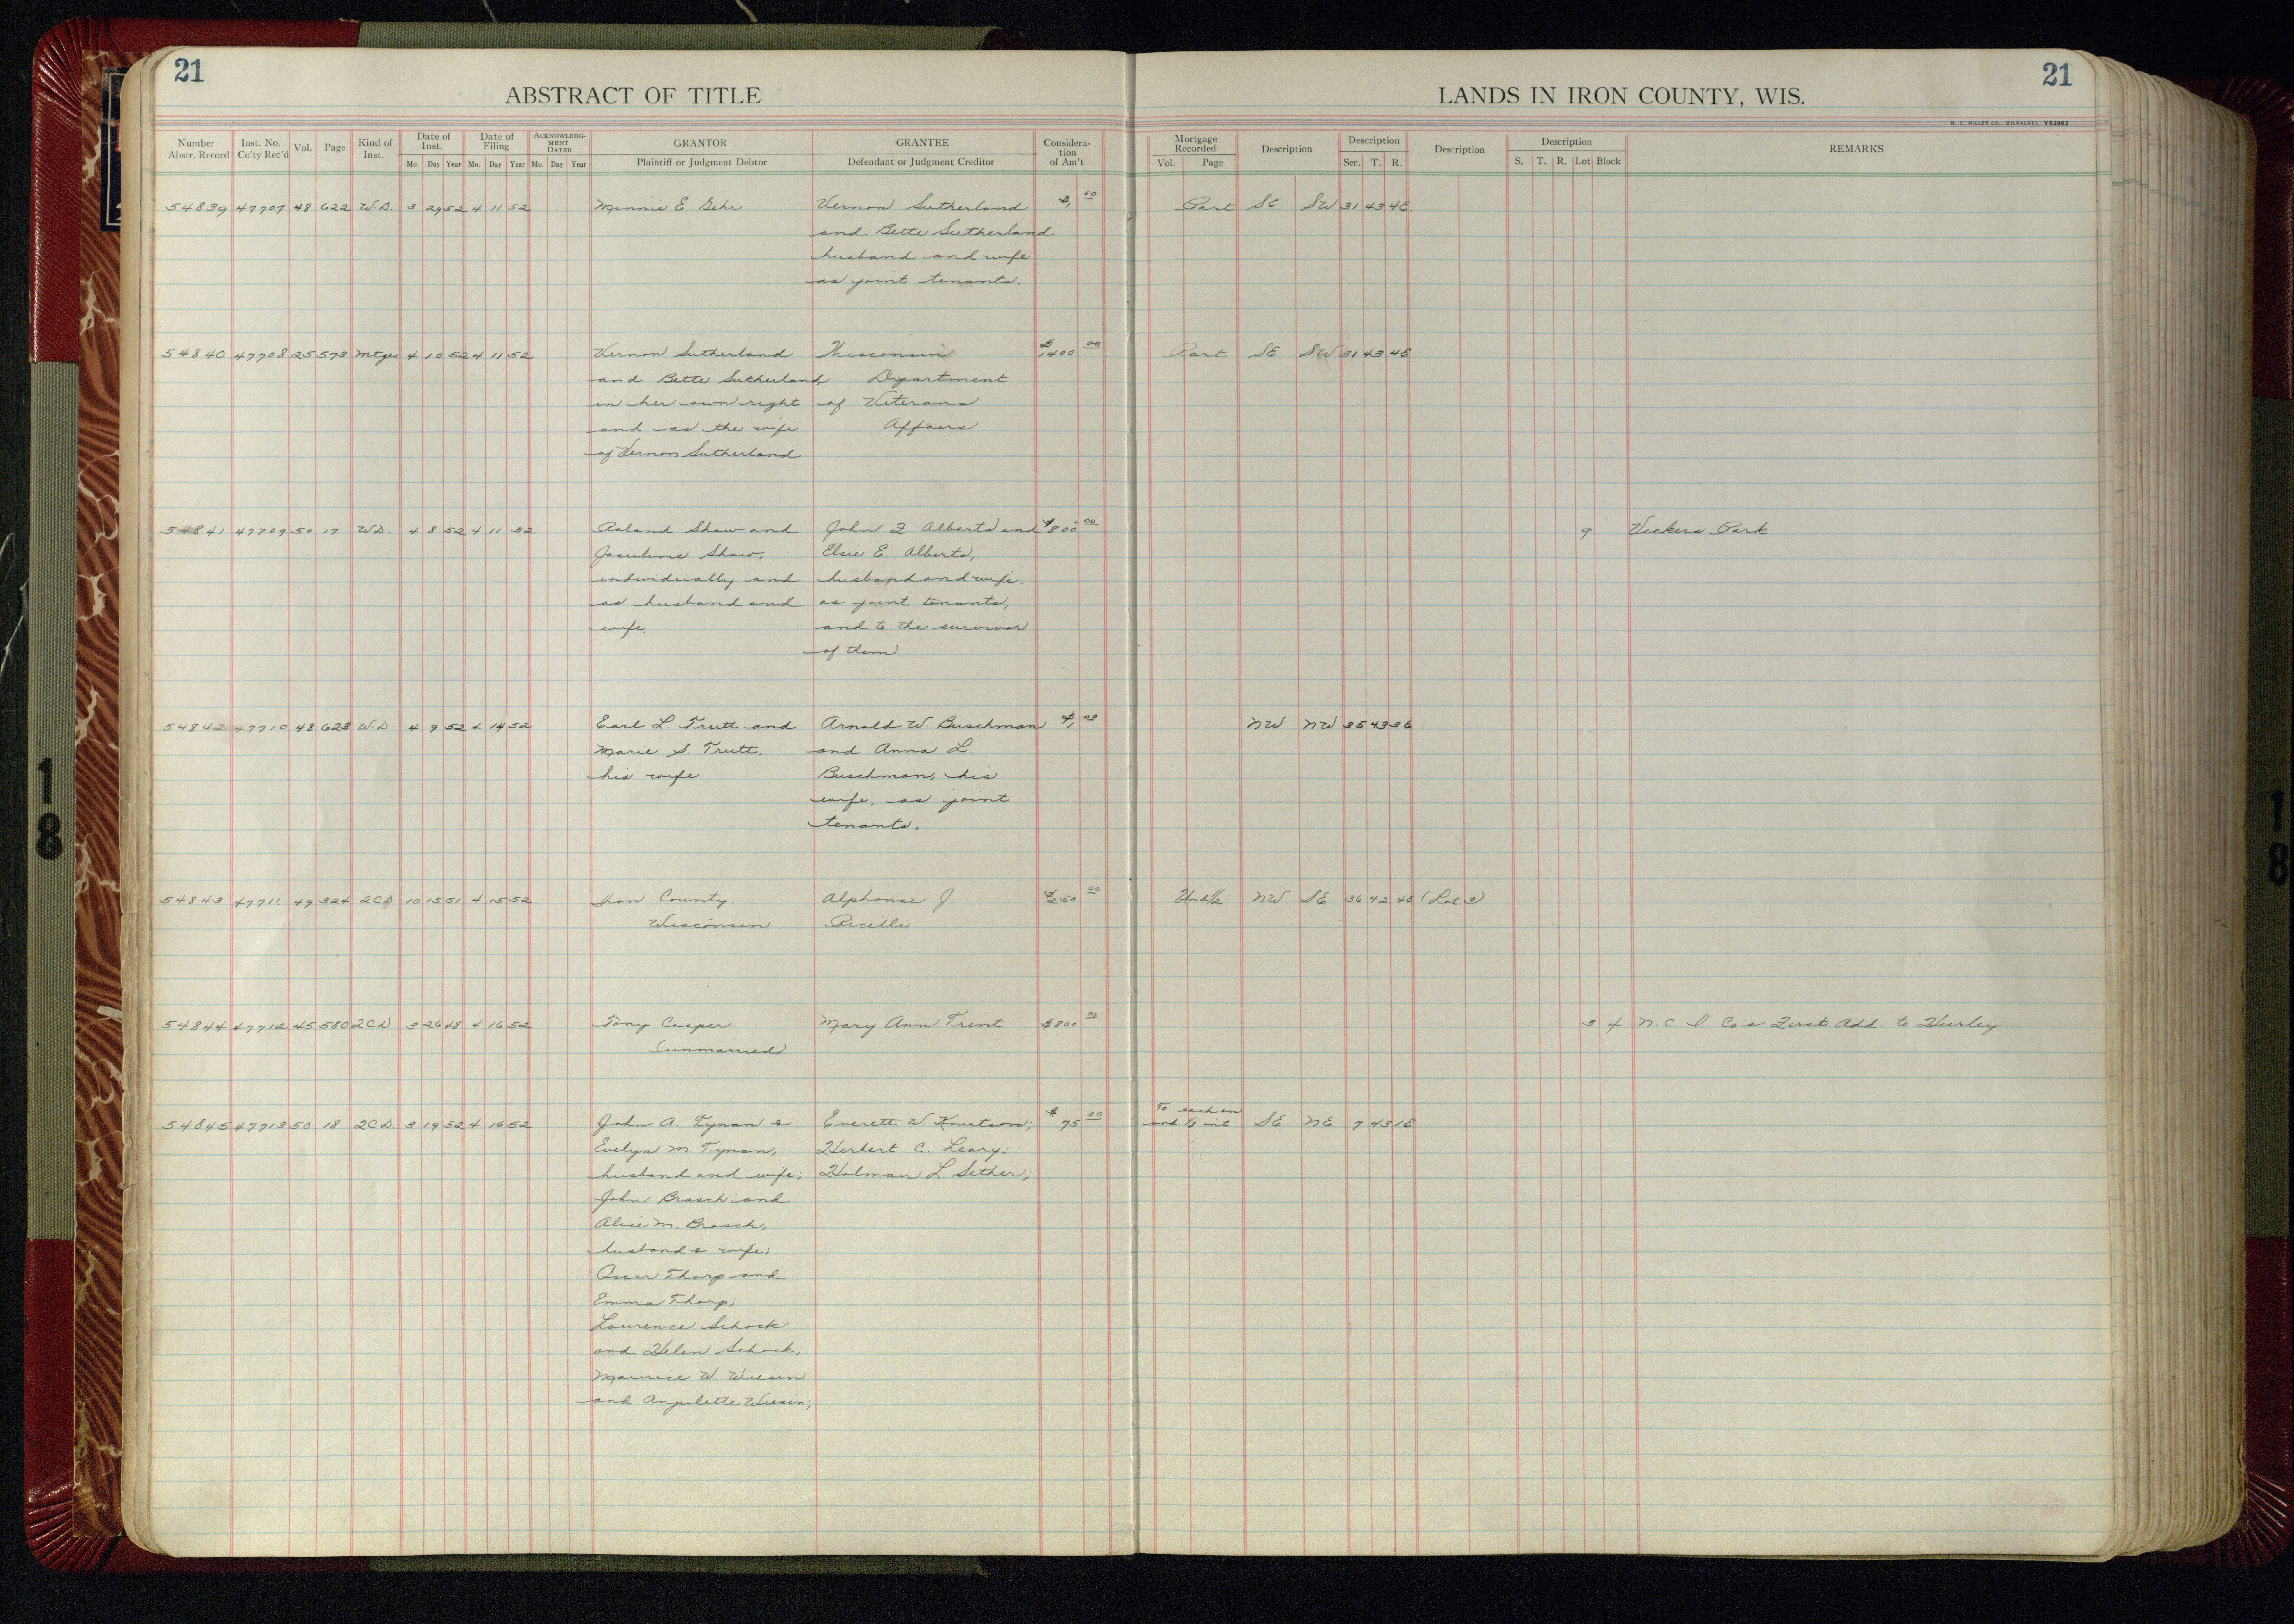 21
21
ABSTRACT OF TITLE
LANDS IN IRON COUNTY, WIS.
H. C. MILLER CO., MILWAUKEE Y62963
Number Abstr. Record Inst. No. Co'ty Rec'd Vol. Page Kind of Inst. Date of Inst. Mo. Day Year Date of Filing Mo. Day Year ACKNOWLEDGMENT DATED Mo. Day Year GRANTOR Plaintiff or Judgment Debtor GRANTEE Defendant or Judgment Creditor Consideration of Am't Mortgage Recorded Vol. Page Description Description Sec. T. R. Description Description S. T. R. Lot Block REMARKS
54839 47707 48 622 W.D. 3 29 52 4 11 52 Minnie E. Gehr Vernon Sutherland $1,00 Part SE SW 31 43 4E
and Bette Sutherland
husband and wife
as joint tenants.
54840 47708 25 573 Mtge 4 10 52 4 11 52 Vernon Sutherland Wisconsin $1400 00 Part SE SW 31 43 4E
and Bette Sutherland, Department
in her own right of Veterans
and as the wife Affairs
of Vernon Sutherland
54841 47709 50 17 W.D. 4 8 52 4 11 52 Roland Shaw and John F Alberts and $800 00 9 Vickers Park
Jaculine Shaw, Elsie E. Alberts,
individually and husband and wife.
as husband and as joint tenants,
wife. and to the survivor
of them.
54842 47710 48 623 W.D 4 9 52 4 14 52 Earl L. Trutt and Arnold W. Buschman $1, 00 NW NW 35 43 3E
Marie S. Trutt, and Anna L.
his wife Buschman, his
wife, as joint
tenants.
54843 47711 49 324 2CD 10 15 51 4 15 52 Iron County, Alphonse J. $250 00 Und 1/2 NW SE 36 42 4E (Lot 3)
Wisconsin Picelli
54844 47712 45 580 2CD 3 26 48 4 16 52 Tony Casper Mary Ann Trent $800 00 3 4 N. C. I. Co's First Add. to Hurley
(unmarried)
54845 47713 50 18 2CD. 3 19 52 4 16 52 John A. Tynan & Everett W Knutson; $75 00 To each an und. int SE NE 7 43 1E
Evelyn M Tynan, Herbert C. Leary;
husband and wife; Halman L. Sether;
John Brasch and
Alice M. Brasch,
husband & wife;
Oscar Tharp and
Emma Tharp;
Laurence Schock
and Helen Schock;
Maurice W. Wiesen
and Anjulette Wiesen;
18
18